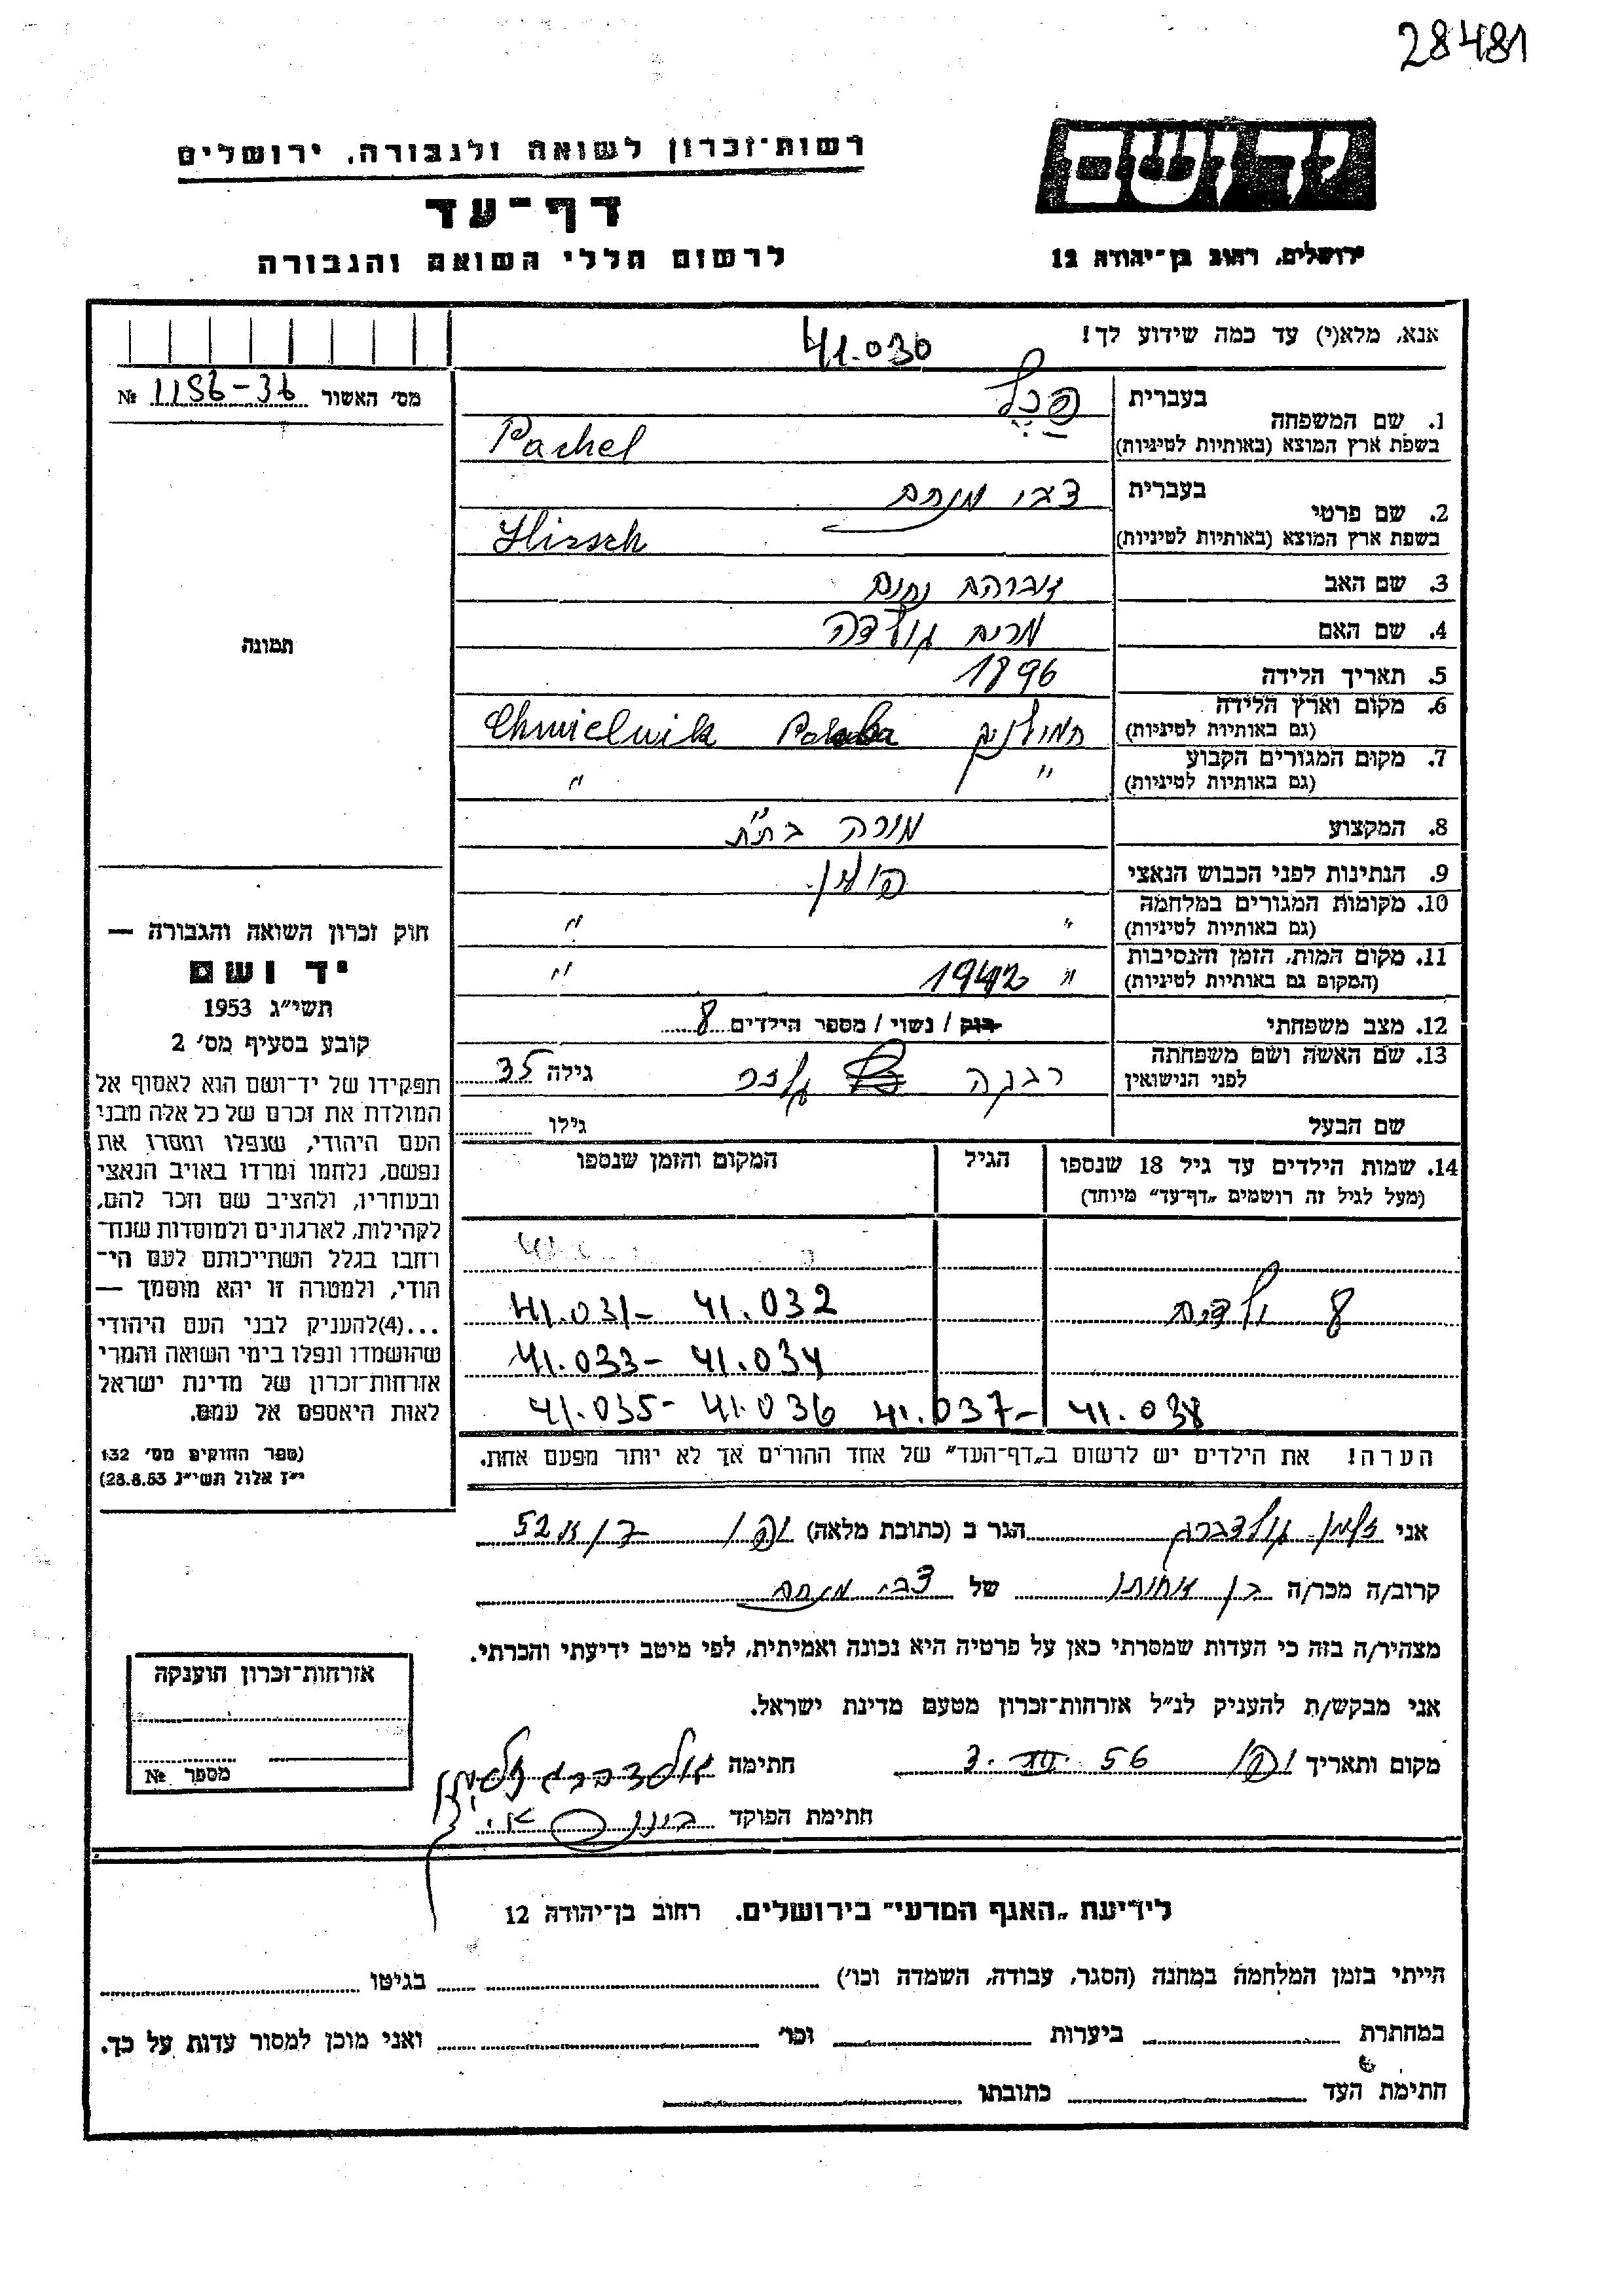 28481
יד ושם
רשות־זכרון לשואה ולגבורה, ירושלים
דף־עד
לרשום חללי השואה והגבורה
ירושלים, רחוב בן־יהודה 12
אנא, מלא(י) עד כמה שידוע לך!
41.030
מס׳ האשור № 1156-36
1. שם המשפחה
בעברית פכל
בשפת ארץ המוצא (באותיות לטיניות) Pachel
2. שם פרטי
בעברית צבי מנחם
בשפת ארץ המוצא (באותיות לטיניות) Hirsch
3. שם האב אברהם נחום
4. שם האם מרים גולדה
5. תאריך הלידה 1896
6. מקום וארץ הלידה
(גם באותיות לטיניות) חמולניק Polska Chmielnik
7. מקום המגורים הקבוע
(גם באותיות לטיניות) " "
8. המקצוע מורה בת״ת
9. הנתינות לפני הכבוש הנאצי פולין
10. מקומות המגורים במלחמה
(גם באותיות לטיניות) " "
11. מקום המות, הזמן והנסיבות
(המקום גם באותיות לטיניות) " 1942 "
12. מצב משפחתי רוק / נשוי / מספר הילדים 8
13. שם האשה ושם משפחתה
לפני הנישואין רבקה גילה 35
שם הבעל גילו
14. שמות הילדים עד גיל 18 שנספו
(מעל לגיל זה רושמים „דף־עד״ מיוחד)
הגיל
המקום והזמן שנספו
8 ילדים 41.031- 41.032
41.033- 41.034
41.035- 41.036 41.037- 41.038
הערה! את הילדים יש לרשום ב„דף־העד״ של אחד ההורים אך לא יותר מפעם אחת.
תמונה
חוק זכרון השואה והגבורה —
יד ושם
תשי״ג 1953
קובע בסעיף מס׳ 2
תפקידו של יד־ושם הוא לאסוף אל
המולדת את זכרם של כל אלה מבני
העם היהודי, שנפלו ומסרו את
נפשם, נלחמו ומרדו באויב הנאצי
ובעוזריו, ולהציב שם וזכר להם,
לקהילות, לארגונים ולמוסדות שנח־
רחבו בגלל השתייכותם לעם הי־
הודי, ולמטרה זו יהא מוסמך —
...(4)להעניק לבני העם היהודי
שהושמדו ונפלו בימי השואה והמרי
אזרחות־זכרון של מדינת ישראל
לאות היאספם אל עמם.
(ספר החוקים מס׳ 132
י״ז אלול תשי״ג 28.8.53)
אני זלמן גולדברג הגר ב (כתובת מלאה) יפו 52
קרוב/ה מכר/ה בן אחותו של צבי מנחם
מצהיר/ה בזה כי העדות שמסרתי כאן על פרטיה היא נכונה ואמיתית, לפי מיטב ידיעתי והכרתי.
אני מבקש/ת להעניק לנ״ל אזרחות־זכרון מטעם מדינת ישראל.
מקום ותאריך יפו 56 3. חתימה גולדברג זלמן
חתימת הפוקד
אזרחות־זכרון הוענקה
מספר №
לידיעת „האגף המדעי״ בירושלים. רחוב בן־יהודה 12
הייתי בזמן המלחמה במחנה (הסגר, עבודה, השמדה וכו׳) בגיטו
במחתרת ביערות וכו׳ ואני מוכן למסור עדות על כך.
חתימת העד כתובתו